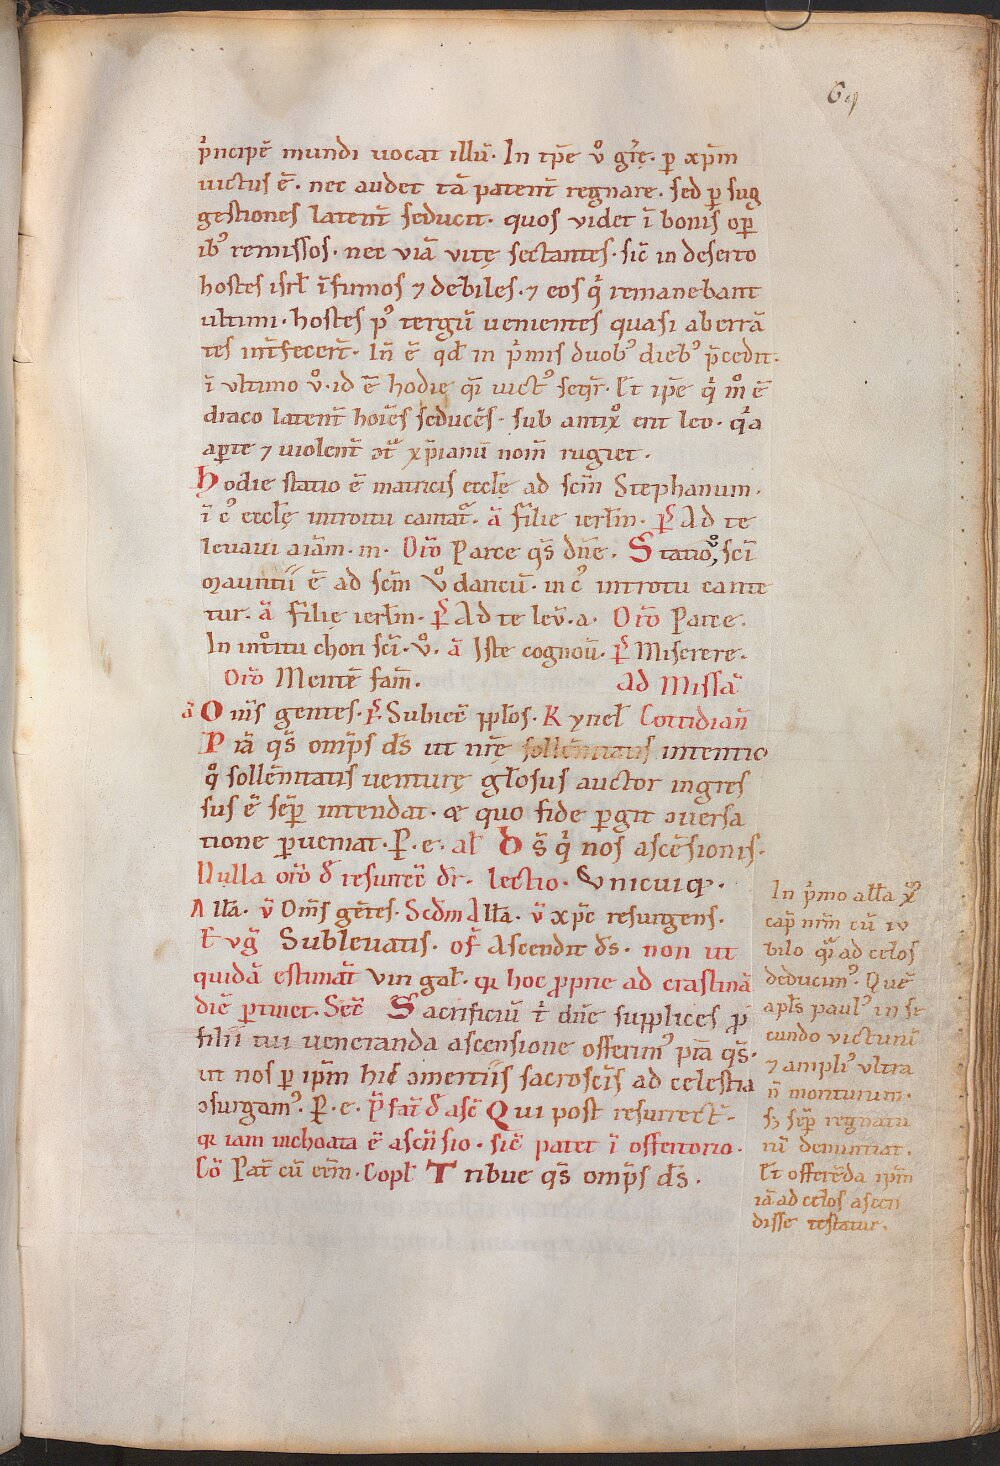 69
p̓ncipē mundi uocat illū. In tp̄e ů gr̄ę. ꝑ xp̄m
uictus ē. nec audet tā patent̄ regnare. sed ꝑ sug
gestiones latent̄ seducit. quos videt ī bonis oꝑ
ib᾽ remissos. nec viā vitę sectantes. sic̄ in deserto
hostes isrł īfirmos ⁊ debiles. ⁊ eos q̓ remanebant
ultimi. hostes p᾽ tergū uenientes quasi aberrā
tes int̄fecer̄t. In̄ ē qd̄ in p̓mis duob᾽ dieb᾽ p̄cedit.
ī ultimo ů. id ē hodie qͣi uict᾽ seqr̄. Et ip̄e q̓ m̊ ē
draco latent̄ hoīes seducēs. sub antix̊ erit leo. qͥa
aꝑte ⁊ uiolent̄ ↄtͣ xp̄ianū nom̄ rugiet.
Hodie statio ē matricis eccłę ad sc̄m Stephanum.
ī c᾽ eccłę introitu cantat᾽. ā filie ierłm. p̄ Ad te
leuaui aīam. m. Or̄o Parce qs̄ dn̄e. Statio ů, sc̄i
Mauritii ē ad sc̄m ů dancū. in c᾽ introitu cante
tur. ā filię ierłm. p̄ Ad te lev̄. a. Or̄o Parce.
In int̊itu chori sc̄i. ů. ā Iste cognou̅. p̄ Miserere.
Or̄o Mentē fam̄. Ad Missā
ā Om̄s gentes. p̄. Subiec̄ pp̄los. Kyrieł Cottidian̄
Piā qs̄ omp̄s ds̄ ut nr̄ę sollēnitatis intentio
q̊ sollēnitatis venturę głosus auctor ingres
sus ē sep̄ intendat. & quo fide ꝑgit ↄuersa
tione ꝑueniat. P. e. ał Ds̄ q̓ nos ascēsionis.
Nulla or̄o d̄ resurrec̄ dr̄. lectio. Vnicuiq.
Ałła. v̄ Om̄s gētes. Scd̄m Ałła. v̄ xp̄c resurgens.
Evg̅ Subleuatis. of̄ Ascendit ds̄. non ut
quidā estimāt Viri gał. qr hoc ꝓprie ad crastinā
diē ꝑtinet. Sec̄ Sacrificiū t̓ dn̄e supplices ꝓ
filii tui ueneranda ascensione offerim᾽ p̄ta qs̄.
ut nos ꝑ ip̄m hic ↄmertiis sacrosc̄is ad celestia
ↄsurgam᾽. P. e. p̄fat̄ d̄ asc̄ Qui post resurrect̄.
qr iam inchoata ē ascēsio. sic̄ patet ī offertorio.
Cō Pat̄ cū er̄m. Copł Tribue qs̄ omp̄s ds̄.
In p̓mo ałła
cap̄ nr̄m cū iu
bilo qͣi ad celos
deducim᾽. Quē
apłs paul᾽ in se
cundo victurū
⁊ ampli᾽ ultra
n̄ moriturum.
sꝫ sep̄ regnatu
rū denuntiat.
Et offerēda ip̄m
iā ad celos ascen
disse testatur.